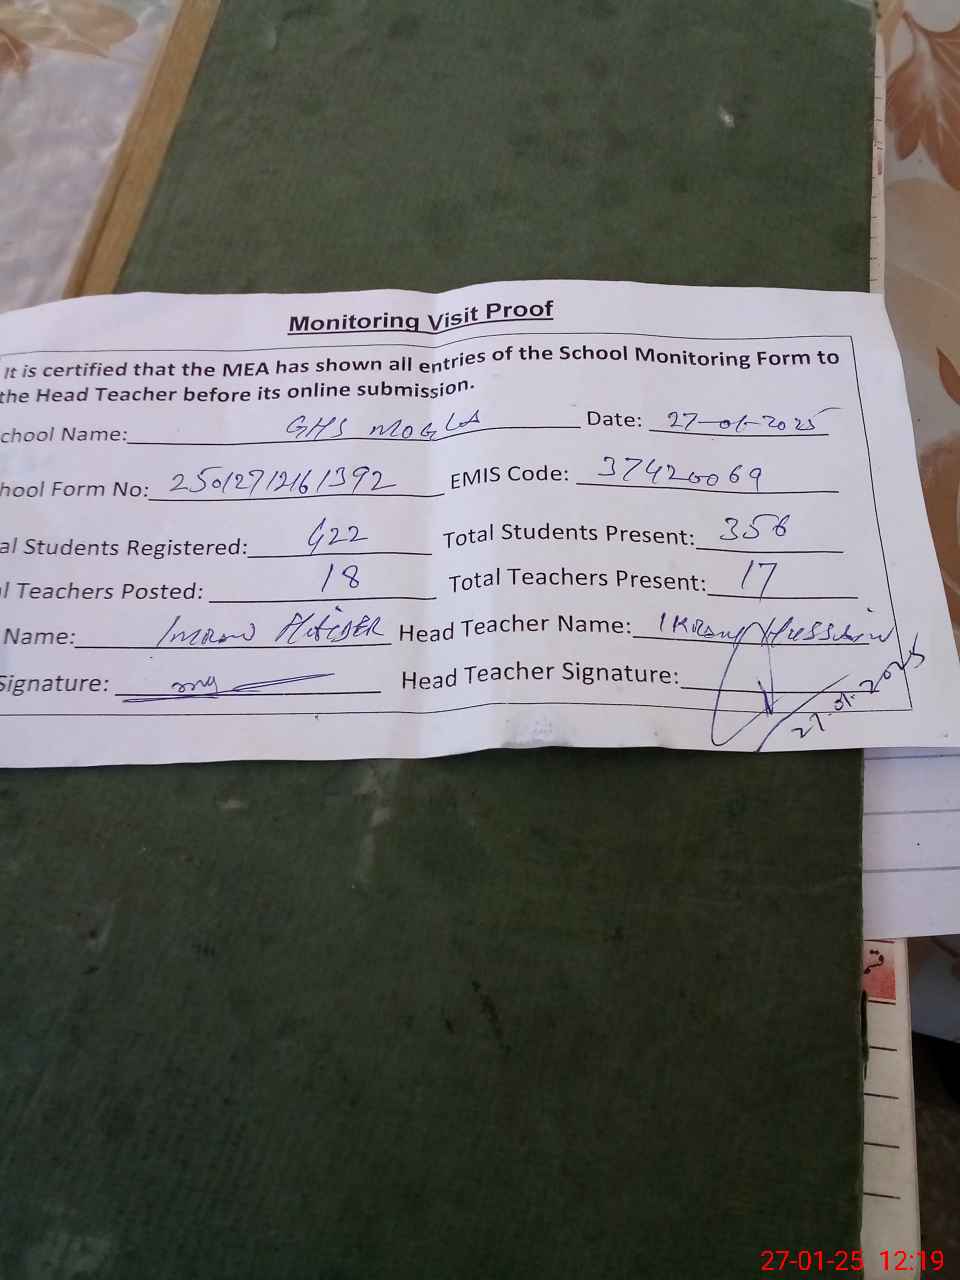 Monitoring Visit Proof
It is certified that the MEA has shown all entries of the School Monitoring Form to
the Head Teacher before its online submission.
chool Name: GHS MOGLA Date: 27-01-2025
hool Form No: 250127121611392 EMIS Code: 37420069
al Students Registered: 422 Total Students Present: 356
l Teachers Posted: 18 Total Teachers Present: 17
Name: Imran HAIDER Head Teacher Name: IKRam Hussain
Signature: Head Teacher Signature:
27.01.2025
27-01-25 12:19